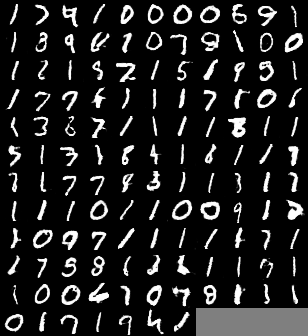 1 7 4 1 0 0 0 0 6 9 1
1 3 9 6 1 0 7 9 1 0 0
1 2 1 9 2 1 5 1 9 5 1
1 7 7 4 1 1 1 7 1 0 6
1 3 6 7 1 1 1 1 8 1 1
5 1 7 1 8 4 1 8 1 1 8
7 1 7 7 9 3 1 1 3 1 7
1 1 1 0 1 1 0 0 9 1 2
1 0 9 7 1 1 1 1 1 7 1
1 7 5 8 1 2 6 1 1 7 1
1 0 0 6 7 0 7 8 1 3 1
0 1 7 1 9 4 1